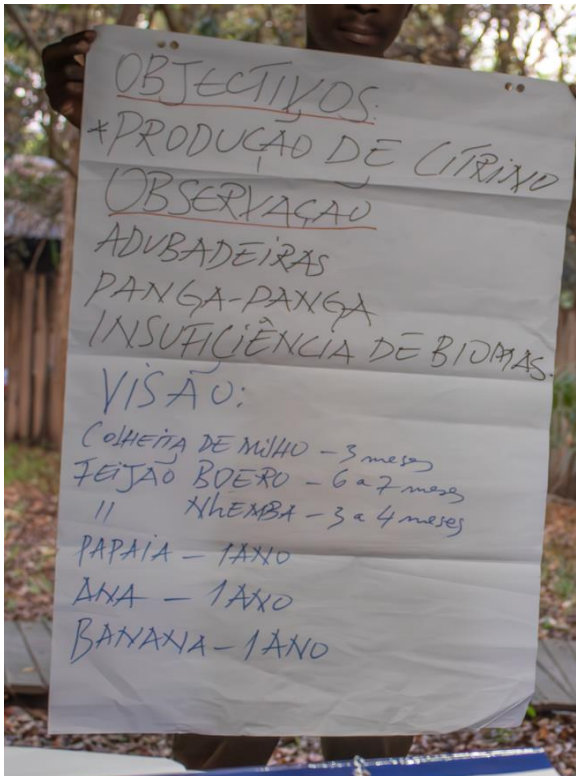 OBJECTIVOS:
*PRODUÇÃO DE CITRINO
OBSERVAÇÃO
ADUBADEIRAS
PANGA-PANGA
INSUFICIÊNCIA DE BIOMAS.
VISÃO:
COLHEITA DE MILHO - 3 meses
FEIJÃO BOERO - 6 a 7 meses
" NHEMBA - 3 a 4 meses
PAPAIA - 1 ANO
ANA - 1 ANO
BANANA - 1 ANO